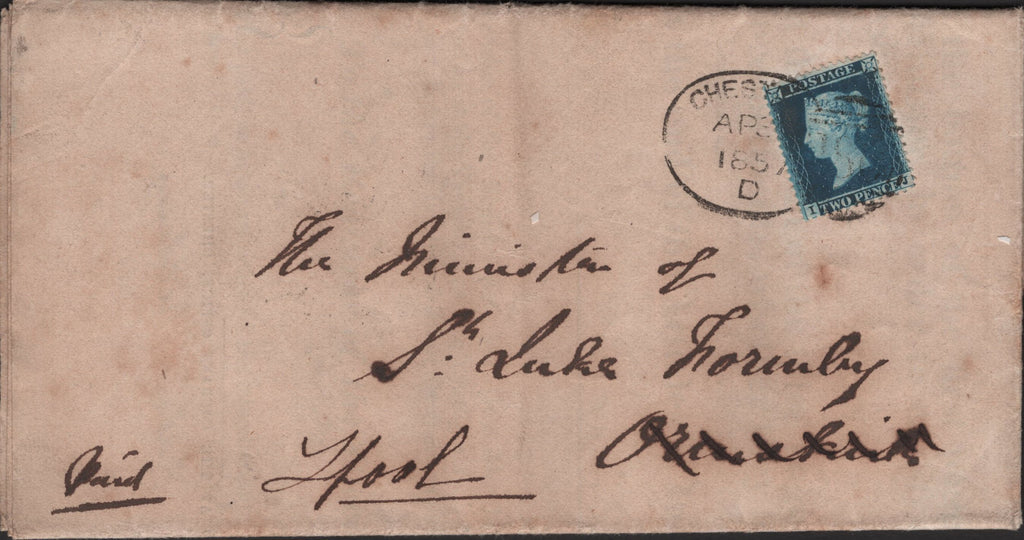 POSTAGE
CHEST
AP3
1857
D
I TWO PENCE J
The Minister of
St. Luke Formby
Ormskirk
Lpool
Paid